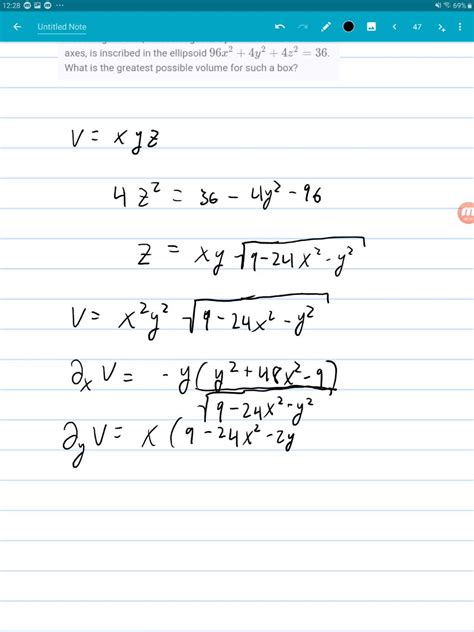 12:28 69%
Untitled Note 47
axes, is inscribed in the ellipsoid 96x² + 4y² + 4z² = 36.
What is the greatest possible volume for such a box?
V = xyz
4z² = 36 - 4y² - 96
z = xy √(9-24x²-y²)
V = x²y² √(9-24x²-y²)
∂ₓV = -y(y²+48x²-9)
√(9-24x²-y²)
∂ᵧV = x(9-24x²-2y